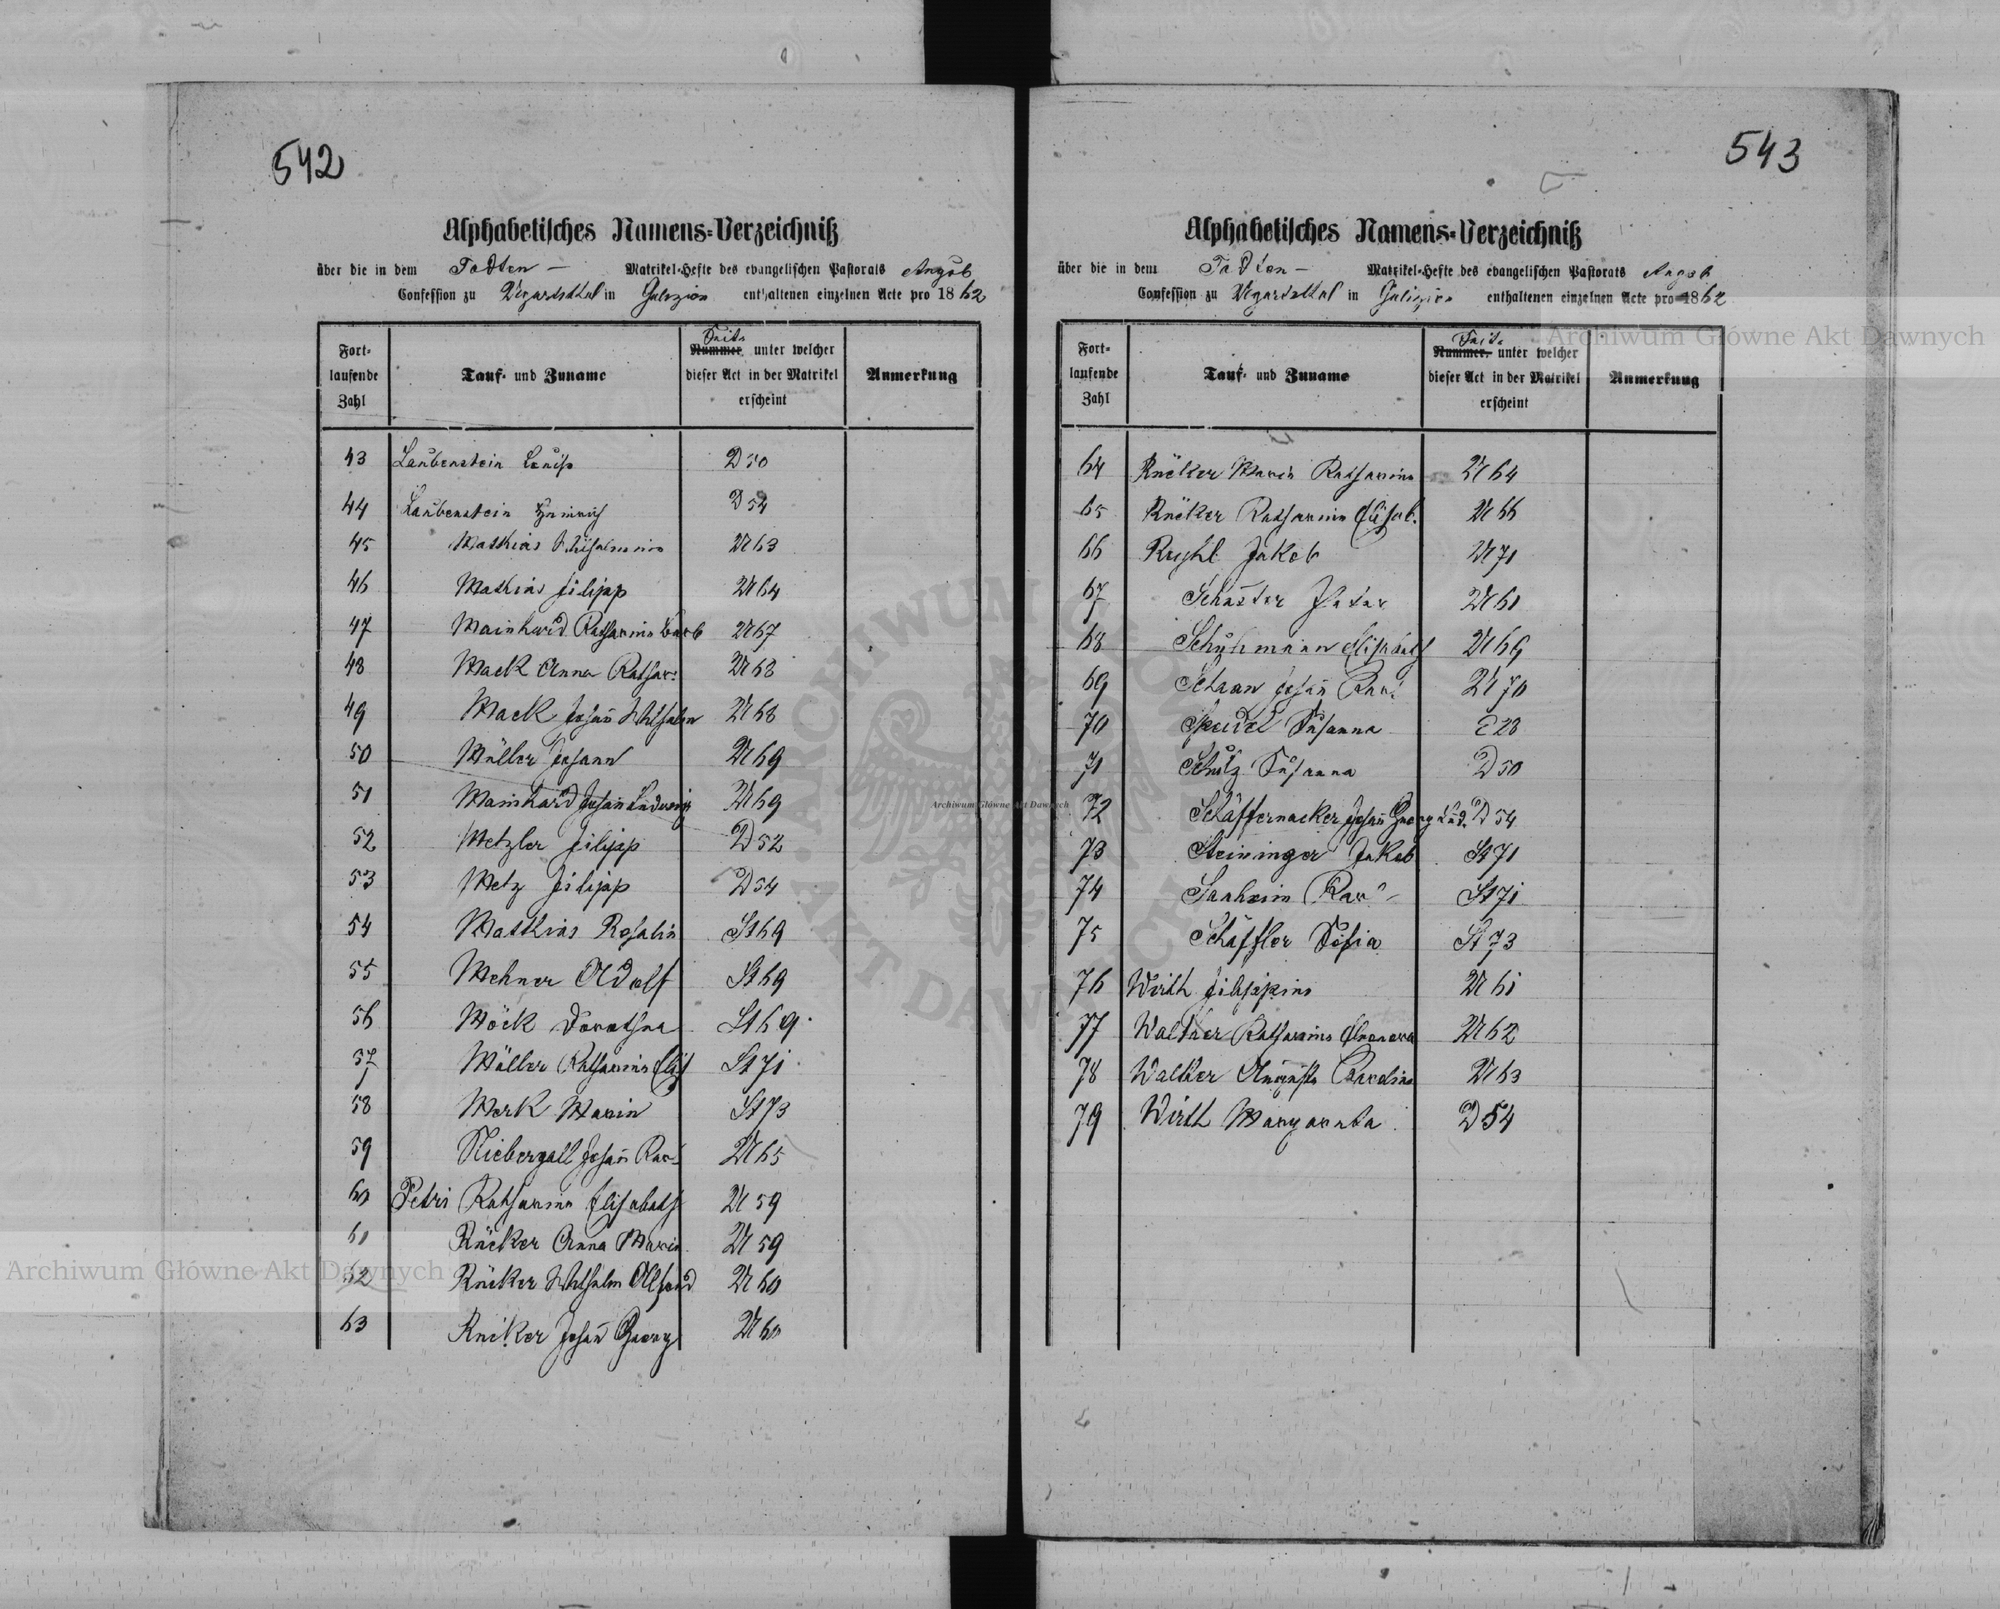 542
Alphabetisches Namens-Verzeichniß
über die in dem Todten – Matrikel-Hefte des evangelischen Pastorats Augsb
Confession zu Ugartsthal in Galizien enthaltenen einzelnen Acte pro 1862
Fort-
laufende
Zahl
Tauf- und Zuname
Seite
Nummer unter welcher
dieser Act in der Matrikel
erscheint
Anmerkung
43 Laubenstein Louise D 50
44 Laubenstein Heinrich D 54
45 Mathias Wilhelmine U 63
46 Mathias Filipp U 64
47 Mainhard Katharina Barb U 67
48 Mack Anna Kathar: U 68
49 Mack Johañ Wilhelm U 68
50 Müller Johann U 69
51 Mainhard Johañ Ludwig U 69
52 Metzler Filipp D 52
53 Metz Filipp D 54
54 Mathias Rosalia St 69
55 Mehner Adolf St 69
56 Möck Dorothea St 69.
57 Müller Katharina Elis St 71
58 Merk Maria St 73
59 Niebergall Johañ Kar: U 65
60 Petri Katharina Elisabeth U 59
61 Rücker Anna Maria U 59
62 Rücker Wilhelm U 60
63 Rücker Johañ Georg U 60
543
Alphabetisches Namens-Verzeichniß
über die in dem Todten – Matrikel-Hefte des evangelischen Pastorats Augsb
Confession zu Ugartsthal in Galizien enthaltenen einzelnen Acte pro 1862
Fort-
laufende
Zahl
Tauf- und Zuname
Seite
Nummer unter welcher
dieser Act in der Matrikel
erscheint
Anmerkung
64 Rücker Maria Katharina U 64
65 Rücker Katharina Elisab. U 66
66 Ruyhl Jakob U 71
67 Schuster Peter U 61
68 Schuhmann Elisabeth U 69
69 Schaan Johañ U 70
70 Speidel Susanna E 28
71 Schulz Susanna D 50
72 Schäffernacker Johañ Georg Lud. D 54
73 Steininger Jakob St 71
74 Sauheim St 71
75 Schäffler Sofia St 73
76 Wirth Filippine U 61
77 Walther Katharina Eleonora U 62
78 Walther Augusta Karolina U 63
79 Wirth Margaretha D 54
Archiwum Główne Akt Dawnych
Archiwum Główne Akt Dawnych
Archiwum Główne Akt Dawnych
ARCHIWUM GŁÓWNE AKT DAWNYCH